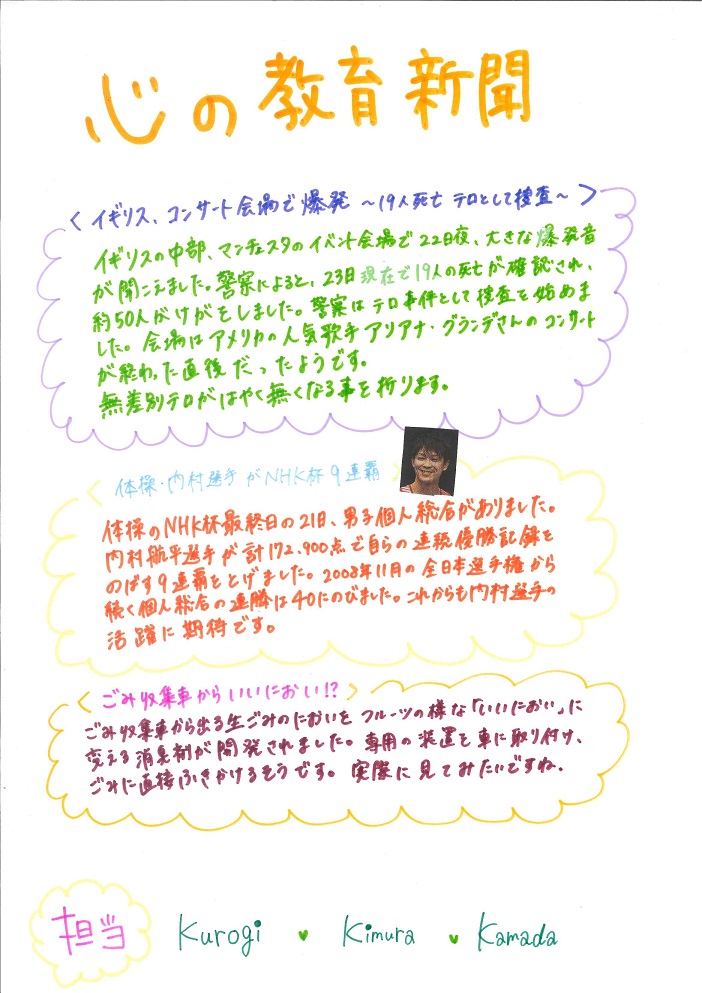 心の教育新聞
< イギリス、コンサート会場で爆発 ～19人死亡 テロとして捜査～ >
イギリスの中部、マンチェスタのイベント会場で22日夜、大きな爆発音
が聞こえました。警察によると、23日現在で19人の死亡が確認され、
約50人がけがをしました。警察はテロ事件として捜査を始めま
した。会場はアメリカの人気歌手アリアナ・グランデさんのコンサート
が終わった直後だったようです。
無差別テロがはやく無くなる事を祈ります。
< 体操・内村選手がNHK杯9連覇 >
体操のNHK杯最終日の21日、男子個人総合がありました。
内村航平選手が計172.900点で自らの連続優勝記録を
のばす9連覇をとげました。2008年11月の全日本選手権から
続く個人総合の連勝は40にのびました。これからも内村選手の
活躍に期待です。
< ごみ収集車からいいにおい!? >
ごみ収集車から出る生ごみのにおいをフルーツの様な「いいにおい」に
変える消臭剤が開発されました。専用の装置を車に取り付け、
ごみに直接ふきかけるそうです。実際に見てみたいですね.
担当 Kurogi ♥ Kimura ♥ Kamada